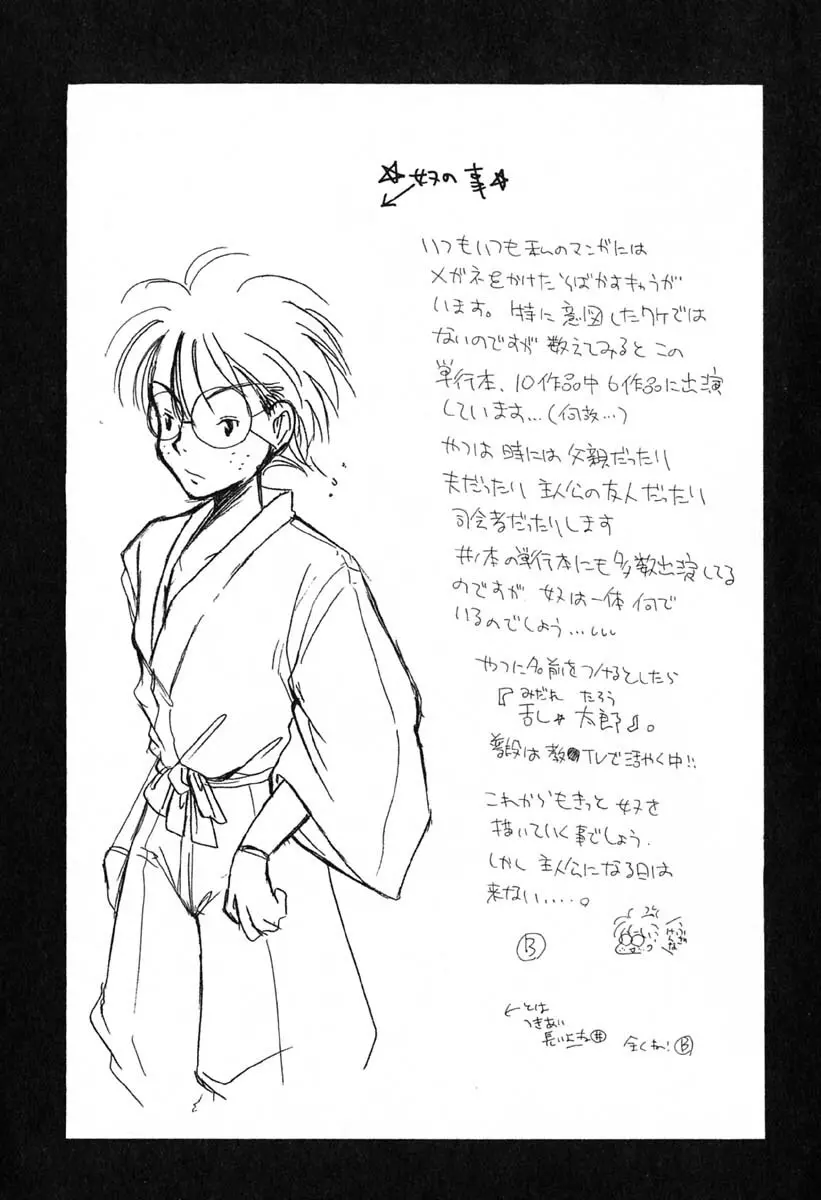 ☆奴の事☆
いつもいつも私のマンガには
メガネをかけたそばかすきゃらが
います。特に意図したワケでは
ないのですが数えてみるとこの
単行本、10作品中6作品に出演
しています…(何故…)
やつは時には父親だったり
夫だったり主人公の友人だったり
司会者だったりします
井ノ本の単行本にも多数出演してる
のですが奴は一体何で
いるのでしょう…
やつに名前をつけるとしたら
みだれ たろう
『乱しゃ太郎』。
普段は教TVで活やく中!!
これからもきっと奴を
描いていく事でしょう.
しかし主人公になる日は
来ない.....。
B
ふざけんなっ
←とは
つきあい
長いよね井
全くね!B